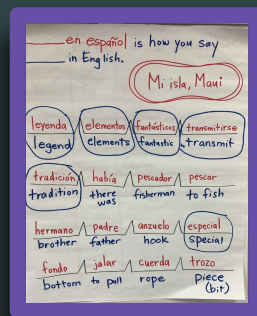 en español is how you say
in English.
Mi isla, Maui
leyenda elementos fantásticos transmitirse
legend elements fantastic transmit
tradición había pescador pescar
tradition there was fisherman to fish
hermano padre anzuelo especial
brother father hook special
fondo jalar cuerda trozo
bottom to pull rope piece
(bit)